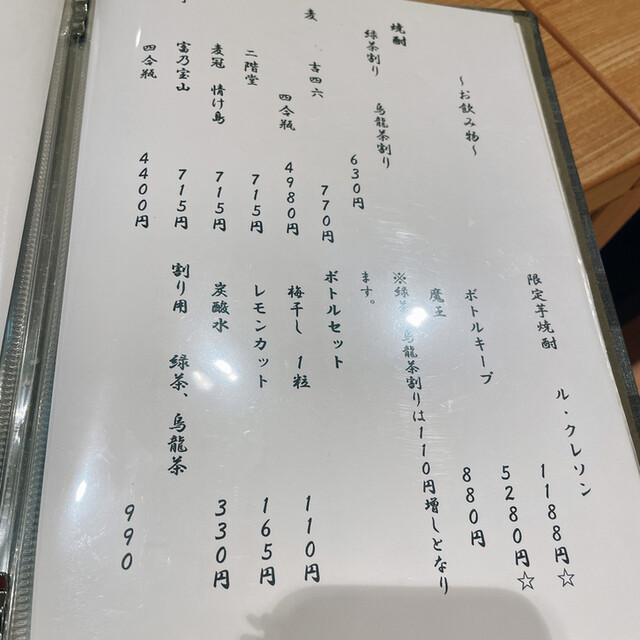 〜お飲み物〜
焼酎
緑茶割り 烏龍茶割り 630円
麦
吉四六 770円
四合瓶 4980円
二階堂 715円
麦冠 情け島 715円
富乃宝山 715円
四合瓶 4400円
限定芋焼酎
ル・クレソン
1188円☆
ボトルキープ 5280円☆
魔王 880円
※緑茶、烏龍茶割りは110円増しとなり
ます。
ボトルセット
梅干し 1粒 110円
レモンカット 165円
炭酸水 330円
割り用 緑茶、烏龍茶
990